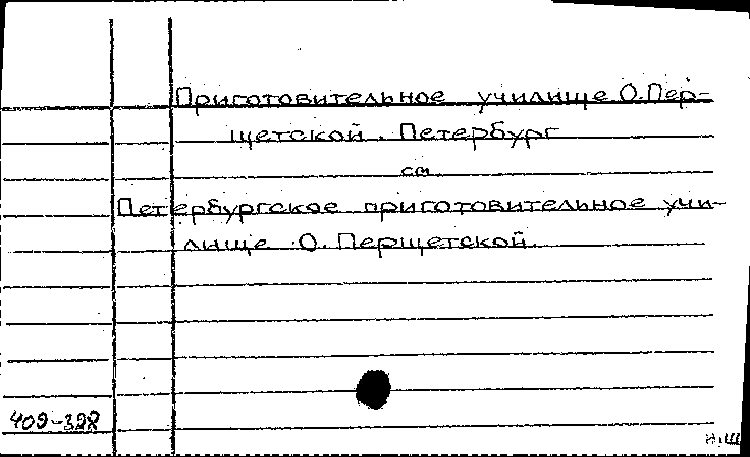 Приготовительное училище О.Пер-
щетской. Петербург
см.
Петербургское приготовительное учи-
лище О. Перщетской.
409-398